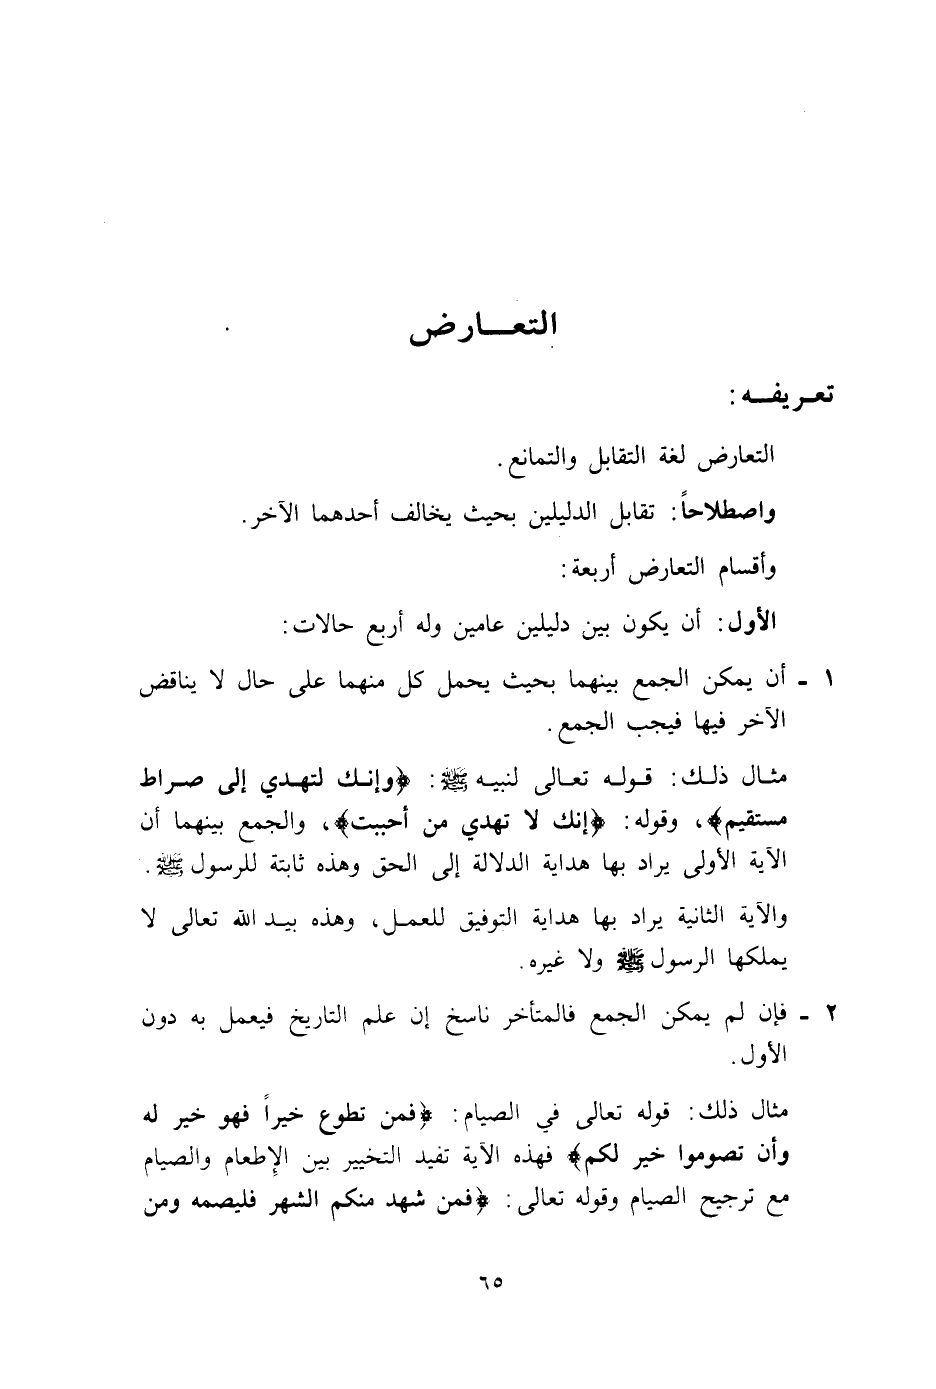 التعـــارض
تعـريفـــه :
التعارض لغة التقابل والتمانع .
واصطلاحاً : تقابل الدليلين بحيث يخالف أحدهما الآخر .
وأقسام التعارض أربعة :
الأول : أن يكون بين دليلين عامين وله أربع حالات :
١ ـ أن يمكن الجمع بينهما بحيث يحمل كل منهما على حال لا يناقض
الآخر فيها فيجب الجمع .
مثـال ذلـك : قـولـه تعـالى لنبيـه ﷺ : ﴿وإنـك لتهـدي إلى صـراط
مستقيم﴾ ، وقوله : ﴿إنك لا تهدي من أحببت﴾ ، والجمع بينهما أن
الآية الأولى يراد بها هداية الدلالة إلى الحق وهذه ثابتة للرسول ﷺ .
والآية الثانية يراد بها هداية التوفيق للعمـل ، وهذه بيـد الله تعالى لا
يملكها الرسول ﷺ ولا غيره .
٢ ـ فإن لم يمكن الجمع فالمتأخر ناسخ إن علم التاريخ فيعمل به دون
الأول .
مثال ذلك : قوله تعالى في الصيام : ﴿فمن تطوع خيراً فهو خير له
وأن تصوموا خير لكم﴾ فهذه الآية تفيد التخيير بين الإطعام والصيام
مع ترجيح الصيام وقوله تعالى : ﴿فمن شهد منكم الشهر فليصمه ومن
٦٥